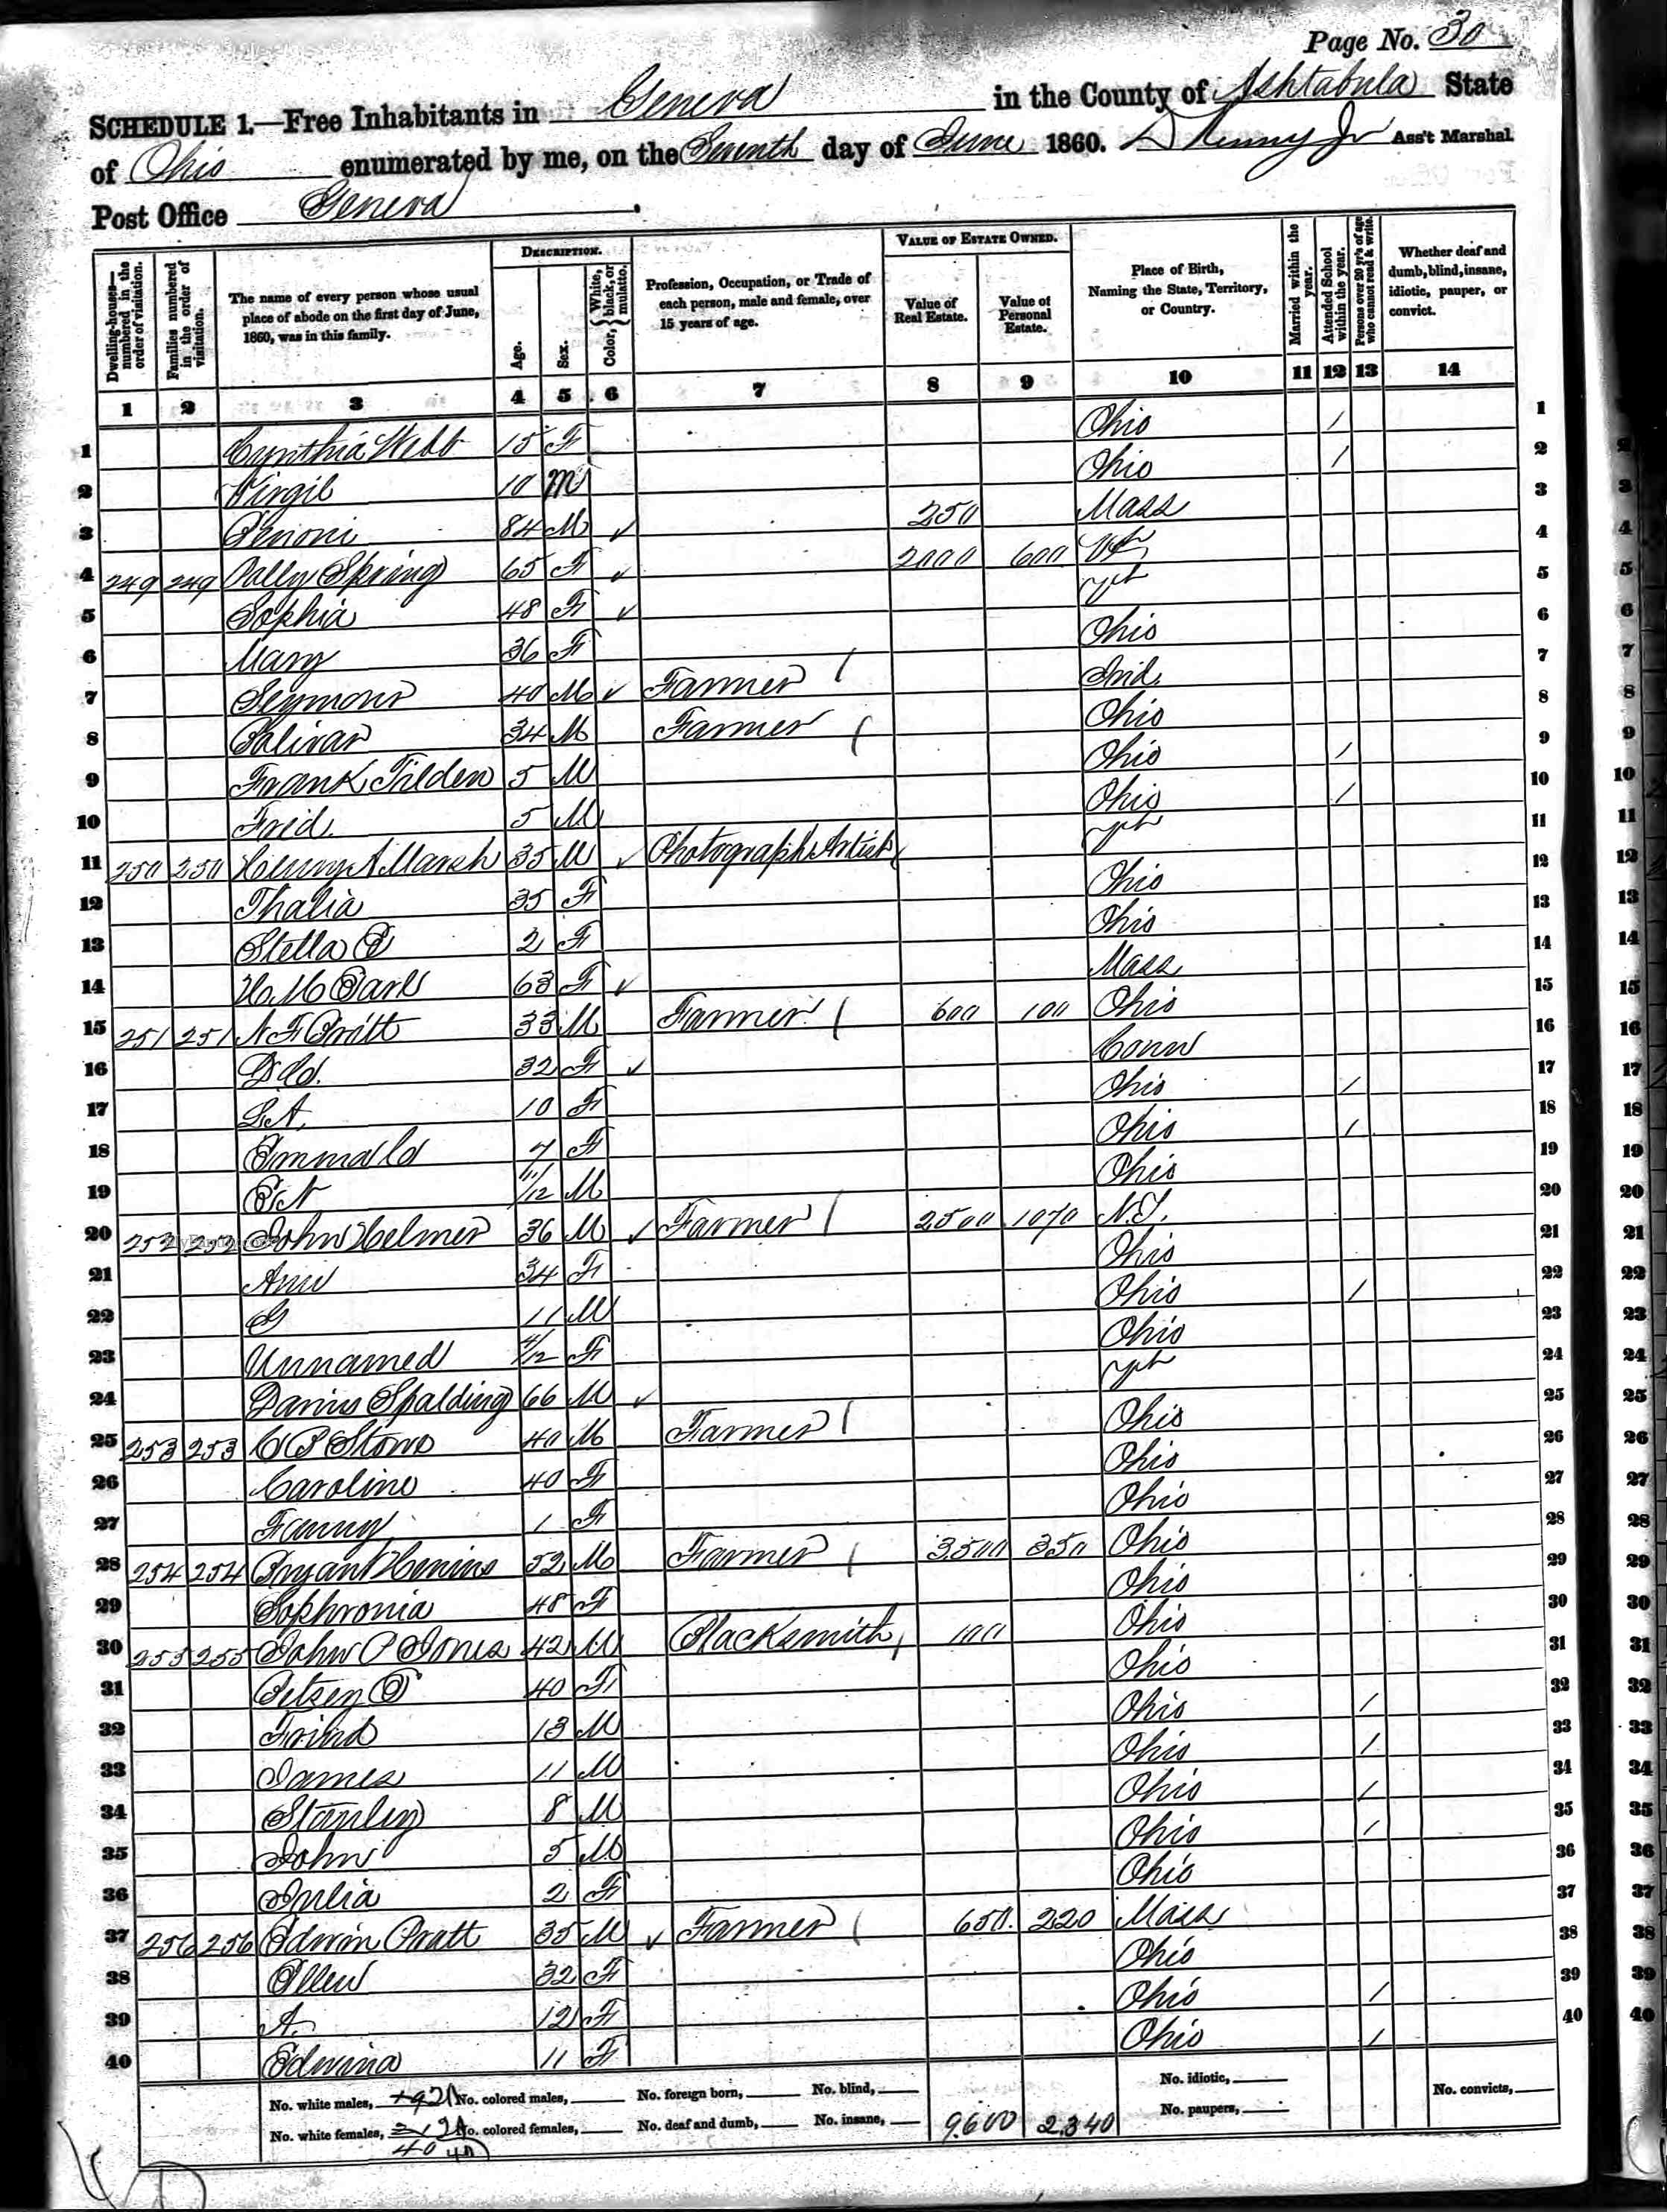 Page No. 30
SCHEDULE 1.—Free Inhabitants in Geneva in the County of Ashtabula State
of Ohio enumerated by me, on the Seventh day of June 1860. Ass't Marshal.
Post Office Geneva
Dwelling-houses—numbered in the order of visitation.
Families numbered in the order of visitation.
The name of every person whose usual place of abode on the first day of June, 1860, was in this family.
DESCRIPTION.
Age.
Sex.
Color, { White, black, or mulatto.
Profession, Occupation, or Trade of each person, male and female, over 15 years of age.
VALUE OF ESTATE OWNED.
Value of Real Estate.
Value of Personal Estate.
Place of Birth, Naming the State, Territory, or Country.
Married within the year.
Attended School within the year.
Persons over 20 y'rs of age who cannot read & write.
Whether deaf and dumb, blind, insane, idiotic, pauper, or convict.
1 2 3 4 5 6 7 8 9 10 11 12 13 14
1 Cynthia Webb 15 F Ohio / 1
2 Virgil 10 M Ohio / 2
3 84 M ✓ 250 Mass 3
4 249 249 Sally Spring 65 F ✓ 2000 600 4
5 Sophia 48 F ✓ 5
6 Mary 36 F Ohio 6
7 Seymour 40 M ✓ Farmer Ind. 7
8 34 M Farmer Ohio 8
9 Frank Tilden 5 M Ohio / 9
10 Fred 5 M Ohio / 10
11 250 250 Henry A Marsh 35 M ✓ Photograph Artist 11
12 Thalia 35 F Ohio 12
13 Stella E 2 F Ohio 13
14 63 F ✓ Mass 14
15 251 251 33 M Farmer 600 100 Ohio 15
16 32 F ✓ Conn 16
17 L A. 10 F Ohio / 17
18 7 F Ohio / 18
19 11/12 M Ohio 19
20 252 252 John Helmer 36 M ✓ Farmer 2500 1070 N.Y. 20
21 Ann 34 F Ohio 21
22 11 M Ohio / 22
23 Unnamed 4/12 F Ohio 23
24 Darius Spalding 66 M ✓ 24
25 253 253 C B Stone 40 M Farmer Ohio 25
26 Caroline 40 F Ohio 26
27 Fanny 1 F Ohio 27
28 254 254 Bryant 52 M Farmer 3500 350 Ohio 28
29 Sophronia 48 F Ohio 29
30 255 255 John P Jones 42 M Blacksmith 100 Ohio 30
31 Betsey 40 F Ohio 31
32 13 M Ohio / 32
33 James 11 M Ohio / 33
34 Stanley 8 M Ohio / 34
35 John 5 M Ohio / 35
36 Julia 2 F Ohio 36
37 256 256 Edwin Pratt 35 M ✓ Farmer 650 220 Mass 37
38 Ellen 32 F Ohio 38
39 A. 12 F Ohio / 39
40 Edwina 11 F Ohio / 40
No. white males, No. colored males, No. foreign born, No. blind, No. idiotic, No. convicts,
No. white females, No. colored females, No. deaf and dumb, No. insane, 9600 2340 No. paupers,
40 40